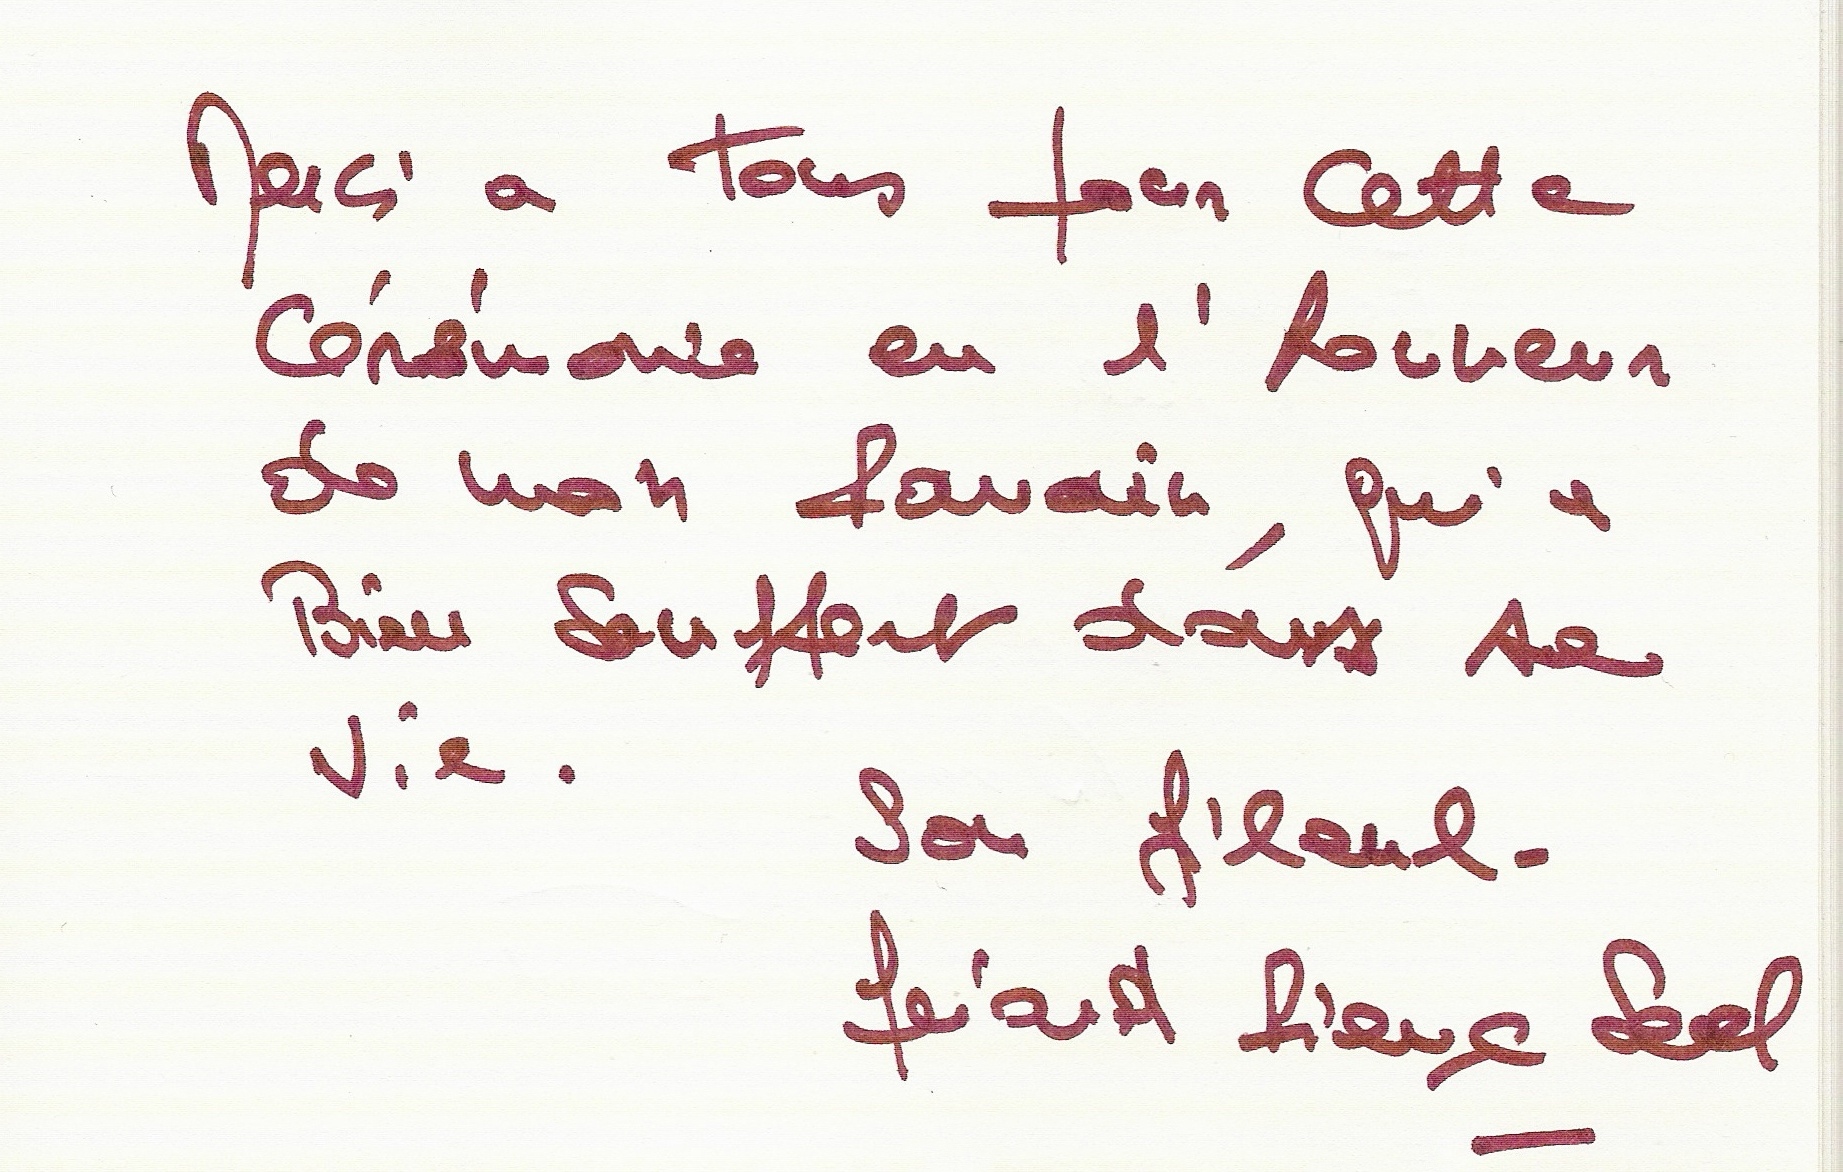 Merci a Tous pour Cette
Cérémonie en l'honneur
de mon Parrain, qui a
Bien Souffert dans sa
vie.
Son fileul -
Gérard Seel